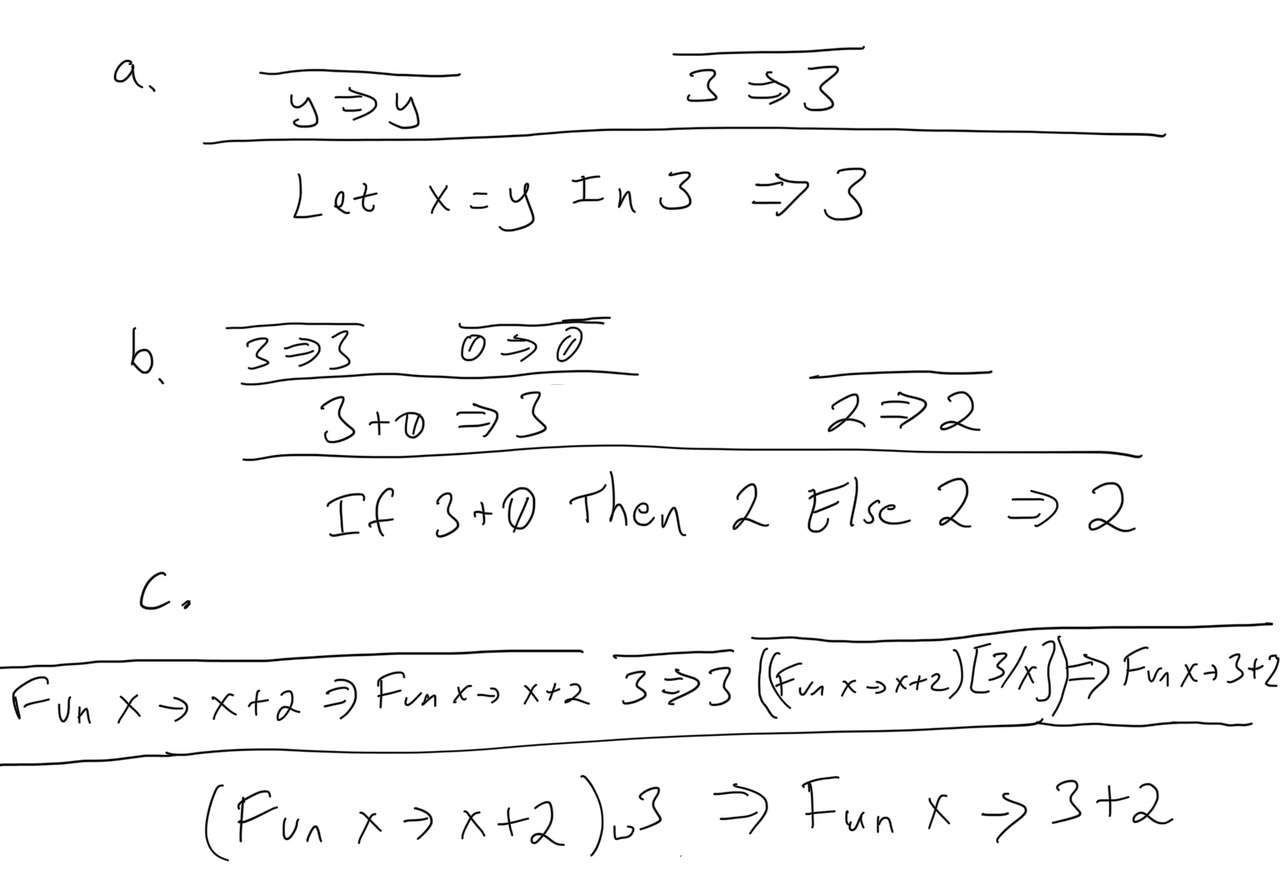 a.
y ⇒ y 3 ⇒ 3
Let x = y In 3 ⇒ 3
b.
3 ⇒ 3 0 ⇒ 0
3 + 0 ⇒ 3 2 ⇒ 2
If 3 + 0 Then 2 Else 2 ⇒ 2
c.
Fun x → x + 2 ⇒ Fun x → x + 2 3 ⇒ 3 ((Fun x → x + 2)[3/x]) ⇒ Fun x → 3 + 2
(Fun x → x + 2)␣3 ⇒ Fun x → 3 + 2